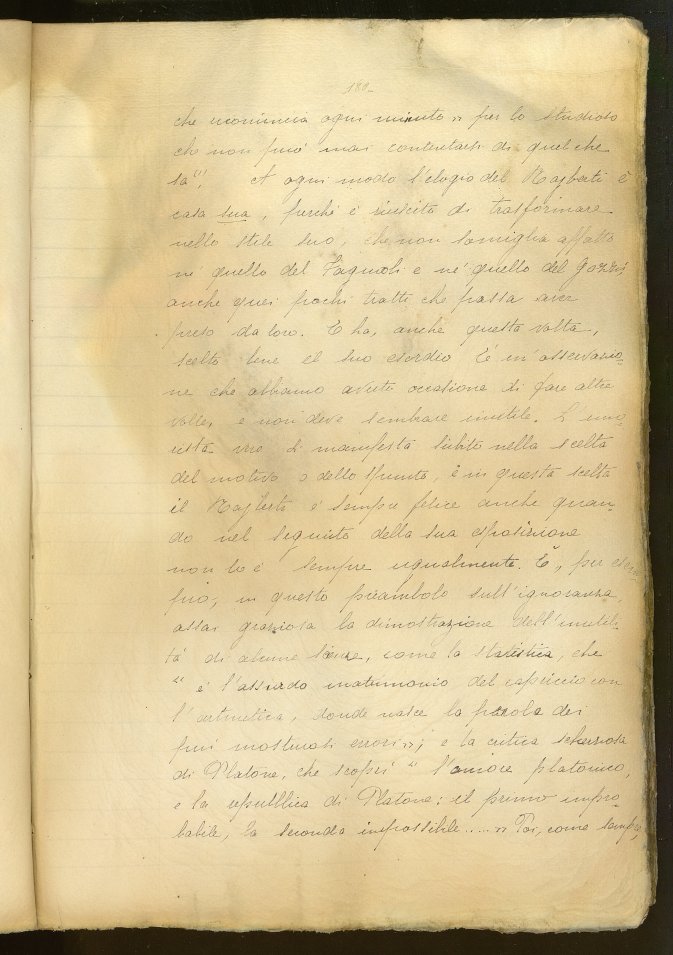 180-
che ricomincia ogni minuto" per lo studioso
che non può mai contentarsi di quel che
sa"! A ogni modo l'elogio del Rajberti è
cosa sua, perché è riuscito di trasformare
nello stile suo, che non somiglia affatto
né quello del Fagiuoli e né quello del Gozzi,
anche quei pochi tratti che possa aver
preso da loro. E ha, anche questa volta,
scelto bene il suo esordio. È un'osservazio-
ne che abbiamo avuto occasione di fare altre
volte, e non deve sembrare inutile. L'umo-
rista vero si manifesta subito nella scelta
del motivo o dello spunto, e in questa scelta
il Rajberti è sempre felice anche quan-
do nel seguito della sua esposizione
non lo è sempre ugualmente. È, per esem-
pio, in questo preambolo sull'ignoranza,
assai graziosa la dimostrazione dell'inutili-
tà di alcune scienze, come la statistica, che
" è l'assurdo matrimonio del capriccio con
l'aritmetica, donde nasce la prole dei
più mostruosi errori"; e la critica scherzosa
di Platone, che scoprì " l'amore platonico,
e la repubblica di Platone: il primo impro-
babile, la seconda impossibile....." Poi, come sempre,